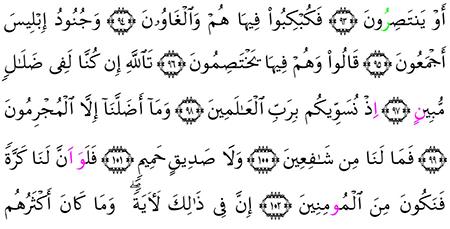 أَوْ يَنتَصِرُونَ ﴿٩٣﴾ فَكُبْكِبُوا۟ فِيهَا هُمْ وَٱلْغَاوُۥنَ ﴿٩٤﴾ وَجُنُودُ إِبْلِيسَ
أَجْمَعُونَ ﴿٩٥﴾ قَالُوا۟ وَهُمْ فِيهَا يَخْتَصِمُونَ ﴿٩٦﴾ تَٱللَّهِ إِن كُنَّا لَفِى ضَلَٰلٍ
مُّبِينٍ ﴿٩٧﴾ اِذْ نُسَوِّيكُم بِرَبِّ ٱلْعَٰلَمِينَ ﴿٩٨﴾ وَمَآ أَضَلَّنَآ إِلَّا ٱلْمُجْرِمُونَ
﴿٩٩﴾ فَمَا لَنَا مِن شَٰفِعِينَ ﴿١٠٠﴾ وَلَا صَدِيقٍ حَمِيمٍ ﴿١٠١﴾ فَلَوَ اَنَّ لَنَا كَرَّةً
فَنَكُونَ مِنَ ٱلْمُومِنِينَ ﴿١٠٢﴾ إِنَّ فِى ذَٰلِكَ لَأٓيَةً ۖ وَمَا كَانَ أَكْثَرُهُم